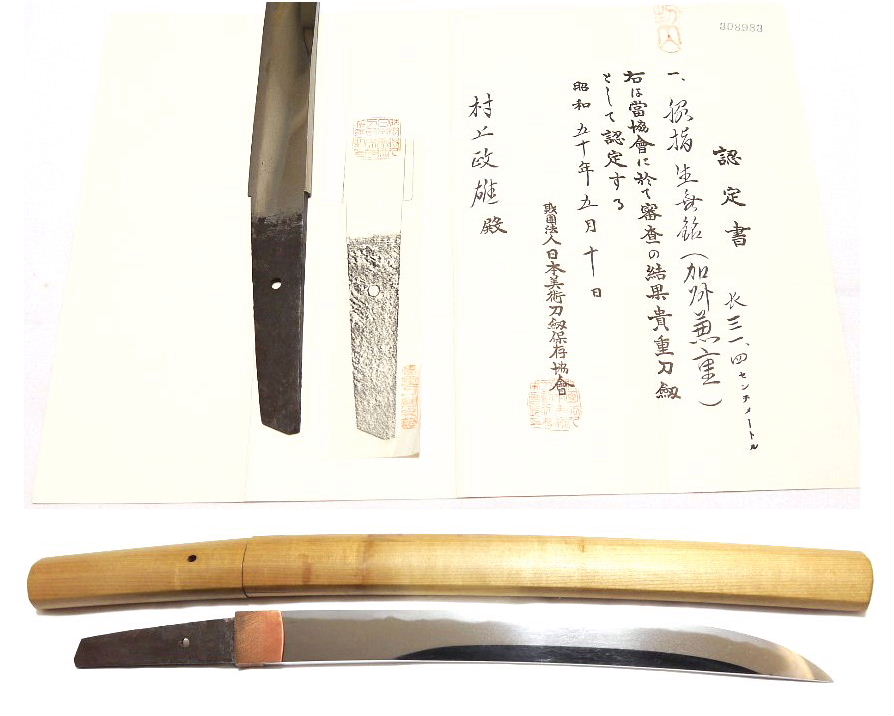 認定書
一、脇指 生無銘(加州兼重) 長三一、四センチメートル
右は當協會に於て審査の結果貴重刀劔
として認定する
昭和五十年五月十日
財團法人日本美術刀劔保存協會
村上政雄殿